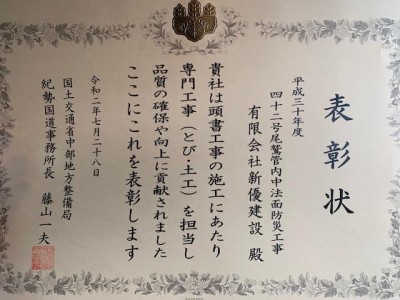 表彰状
平成三十年度
四十二号尾鷲管内中法面防災工事
有限会社新優建設 殿
貴社は頭書工事の施工にあたり
専門工事（とび・土工）を担当し
品質の確保や向上に貢献されました
ここにこれを表彰します
令和二年七月二十八日
国土交通省中部地方整備局
紀勢国道事務所長 藤山一夫